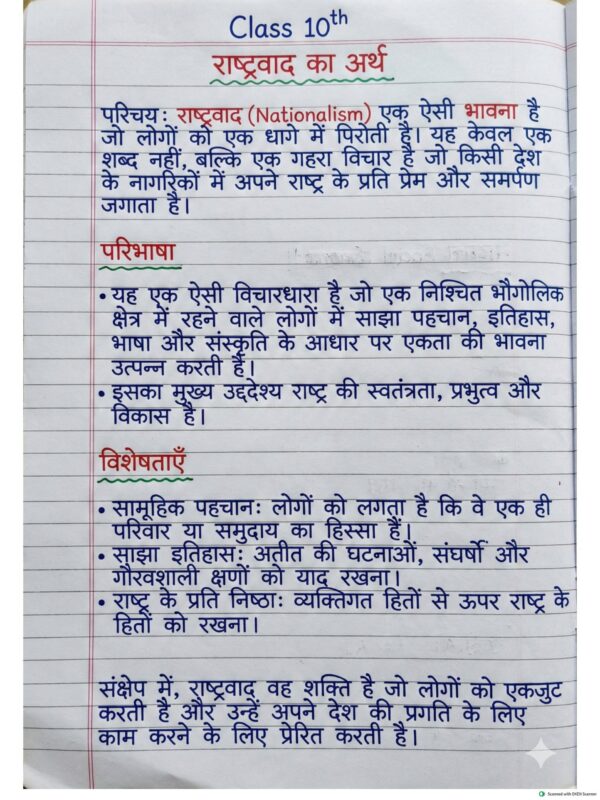 Class 10th
राष्ट्रवाद का अर्थ
परिचय: राष्ट्रवाद (Nationalism) एक ऐसी भावना है
जो लोगों को एक धागे में पिरोती है। यह केवल एक
शब्द नहीं, बल्कि एक गहरा विचार है जो किसी देश
के नागरिकों में अपने राष्ट्र के प्रति प्रेम और समर्पण
जगाता है।
परिभाषा
• यह एक ऐसी विचारधारा है जो एक निश्चित भौगोलिक
क्षेत्र में रहने वाले लोगों में साझा पहचान, इतिहास,
भाषा और संस्कृति के आधार पर एकता की भावना
उत्पन्न करती है।
• इसका मुख्य उद्ददेश्य राष्ट्र की स्वतंत्रता, प्रभुत्व और
विकास है।
विशेषताएँ
• सामूहिक पहचान: लोगों को लगता है कि वे एक ही
परिवार या समुदाय का हिस्सा हैं।
• साझा इतिहास: अतीत की घटनाओं, संघर्षों और
गौरवशाली क्षणों को याद रखना।
• राष्ट्र के प्रति निष्ठा: व्यक्तिगत हितों से ऊपर राष्ट्र के
हितों को रखना।
संक्षेप में, राष्ट्रवाद वह शक्ति है जो लोगों को एकजुट
करती है और उन्हें अपने देश की प्रगति के लिए
काम करने के लिए प्रेरित करती है।
Scanned with OKEN Scanner